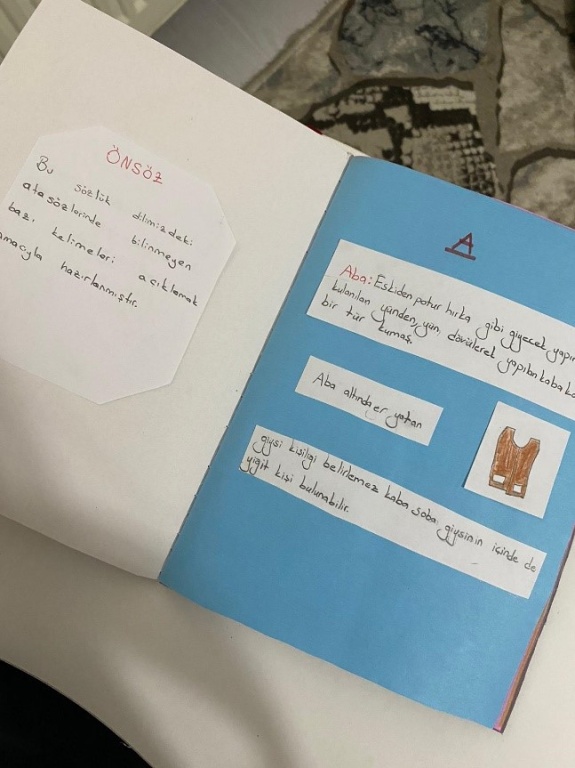 ÖNSÖZ
Bu sözlük dilimizdeki
atasözlerinde bilinmeyen
bazı kelimeleri açıklamak
amacıyla hazırlanmıştır.
A
Aba: Eskiden potur hırka gibi giyecek
kulanılan yünden, yün dövülerek yapılan kaba
bir tür kumaş.
Aba altında er yatan
giysi kişiliği belirlemez kaba soba giysinin içinde de
yiğit kişi bulunabilir.